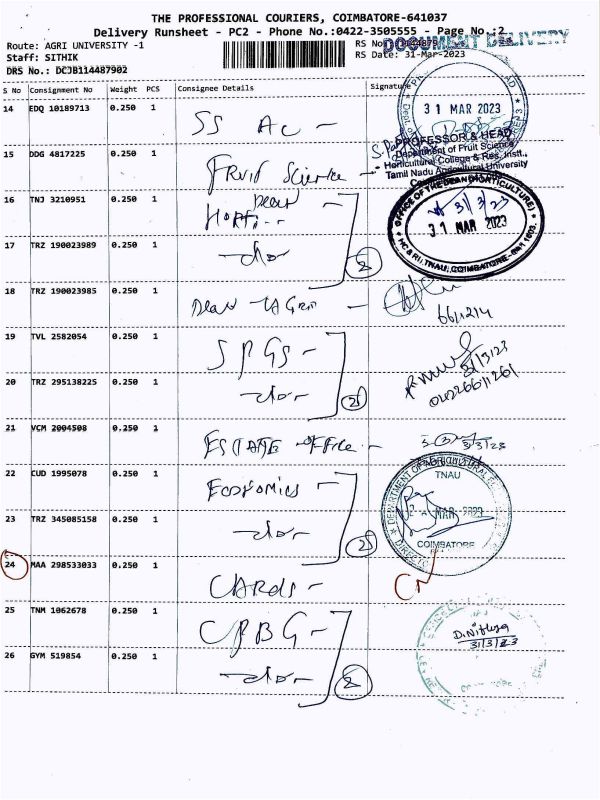 THE PROFESSIONAL COURIERS, COIMBATORE-641037
Delivery Runsheet - PC2 - Phone No.:0422-3505555 - Page No.:2
Route: AGRI UNIVERSITY -1
RS No
DOCUMENT DELIVERY
Staff: SITHIK
RS Date: 31-Mar-2023
DRS No.: DCJB114487902
S No Consignment No Weight PCS Consignee Details Signature
14 EDQ 10189713 0.250 1
SS AC -
31 MAR 2023
PROFESSOR & HEAD
Department of Fruit Science
Horticultural College & Res. Instt.,
Tamil Nadu Agricultural University
15 DDG 4817225 0.250 1
Fruit Science -
16 TNJ 3210951 0.250 1
Dean
Horti. -
OFFICE OF THE DEAN (HORTICULTURE)
31/3/23
31 MAR 2023
HC & RI, TNAU, COIMBATORE-641 003.
17 TRZ 190023989 0.250 1
-do-
2
18 TRZ 190023985 0.250 1
Dean Agri -
6611214
19 TVL 2582054 0.250 1
SPGS -
31/3/23
04226611261
20 TRZ 295138225 0.250 1
-do-
2
21 VCM 2004508 0.250 1
ESTATE office -
31/3/23
22 CUD 1995078 0.250 1
Economics -
DEPARTMENT OF AGRICULTURAL
TNAU
MAR 2023
COIMBATORE
23 TRZ 345085158 0.250 1
-do-
2
24 MAA 298533033 0.250 1
CARDS -
25 TNM 1062678 0.250 1
CPBG -
D.Nithya
31/3/23
26 GYM 519854 0.250 1
-do-
2